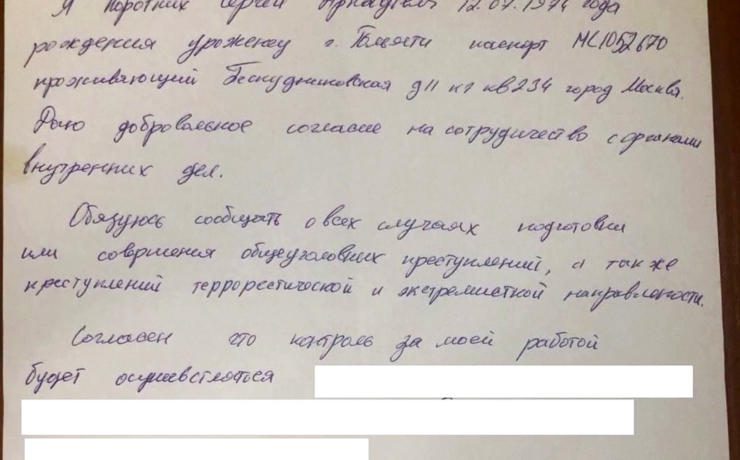 Я Коротких Сергей Аркадьевич 12.07.1974 года
рождения уроженец г. Тольятти паспорт МС1052670
проживающий Бескудниковская д11 к1 кв234 город Москва.
Даю добровольное согласие на сотрудничество с органами
внутренних дел.
Обязуюсь сообщать о всех случаях подготовки
или совершения общеуголовных преступлений, а также
преступлений террористической и экстремисткой направлености.
Согласен что контроль за моей работой
будет осуществляться